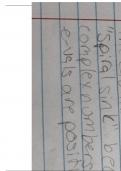 "spiral sink" bec
complex numbers
e-vals are positi